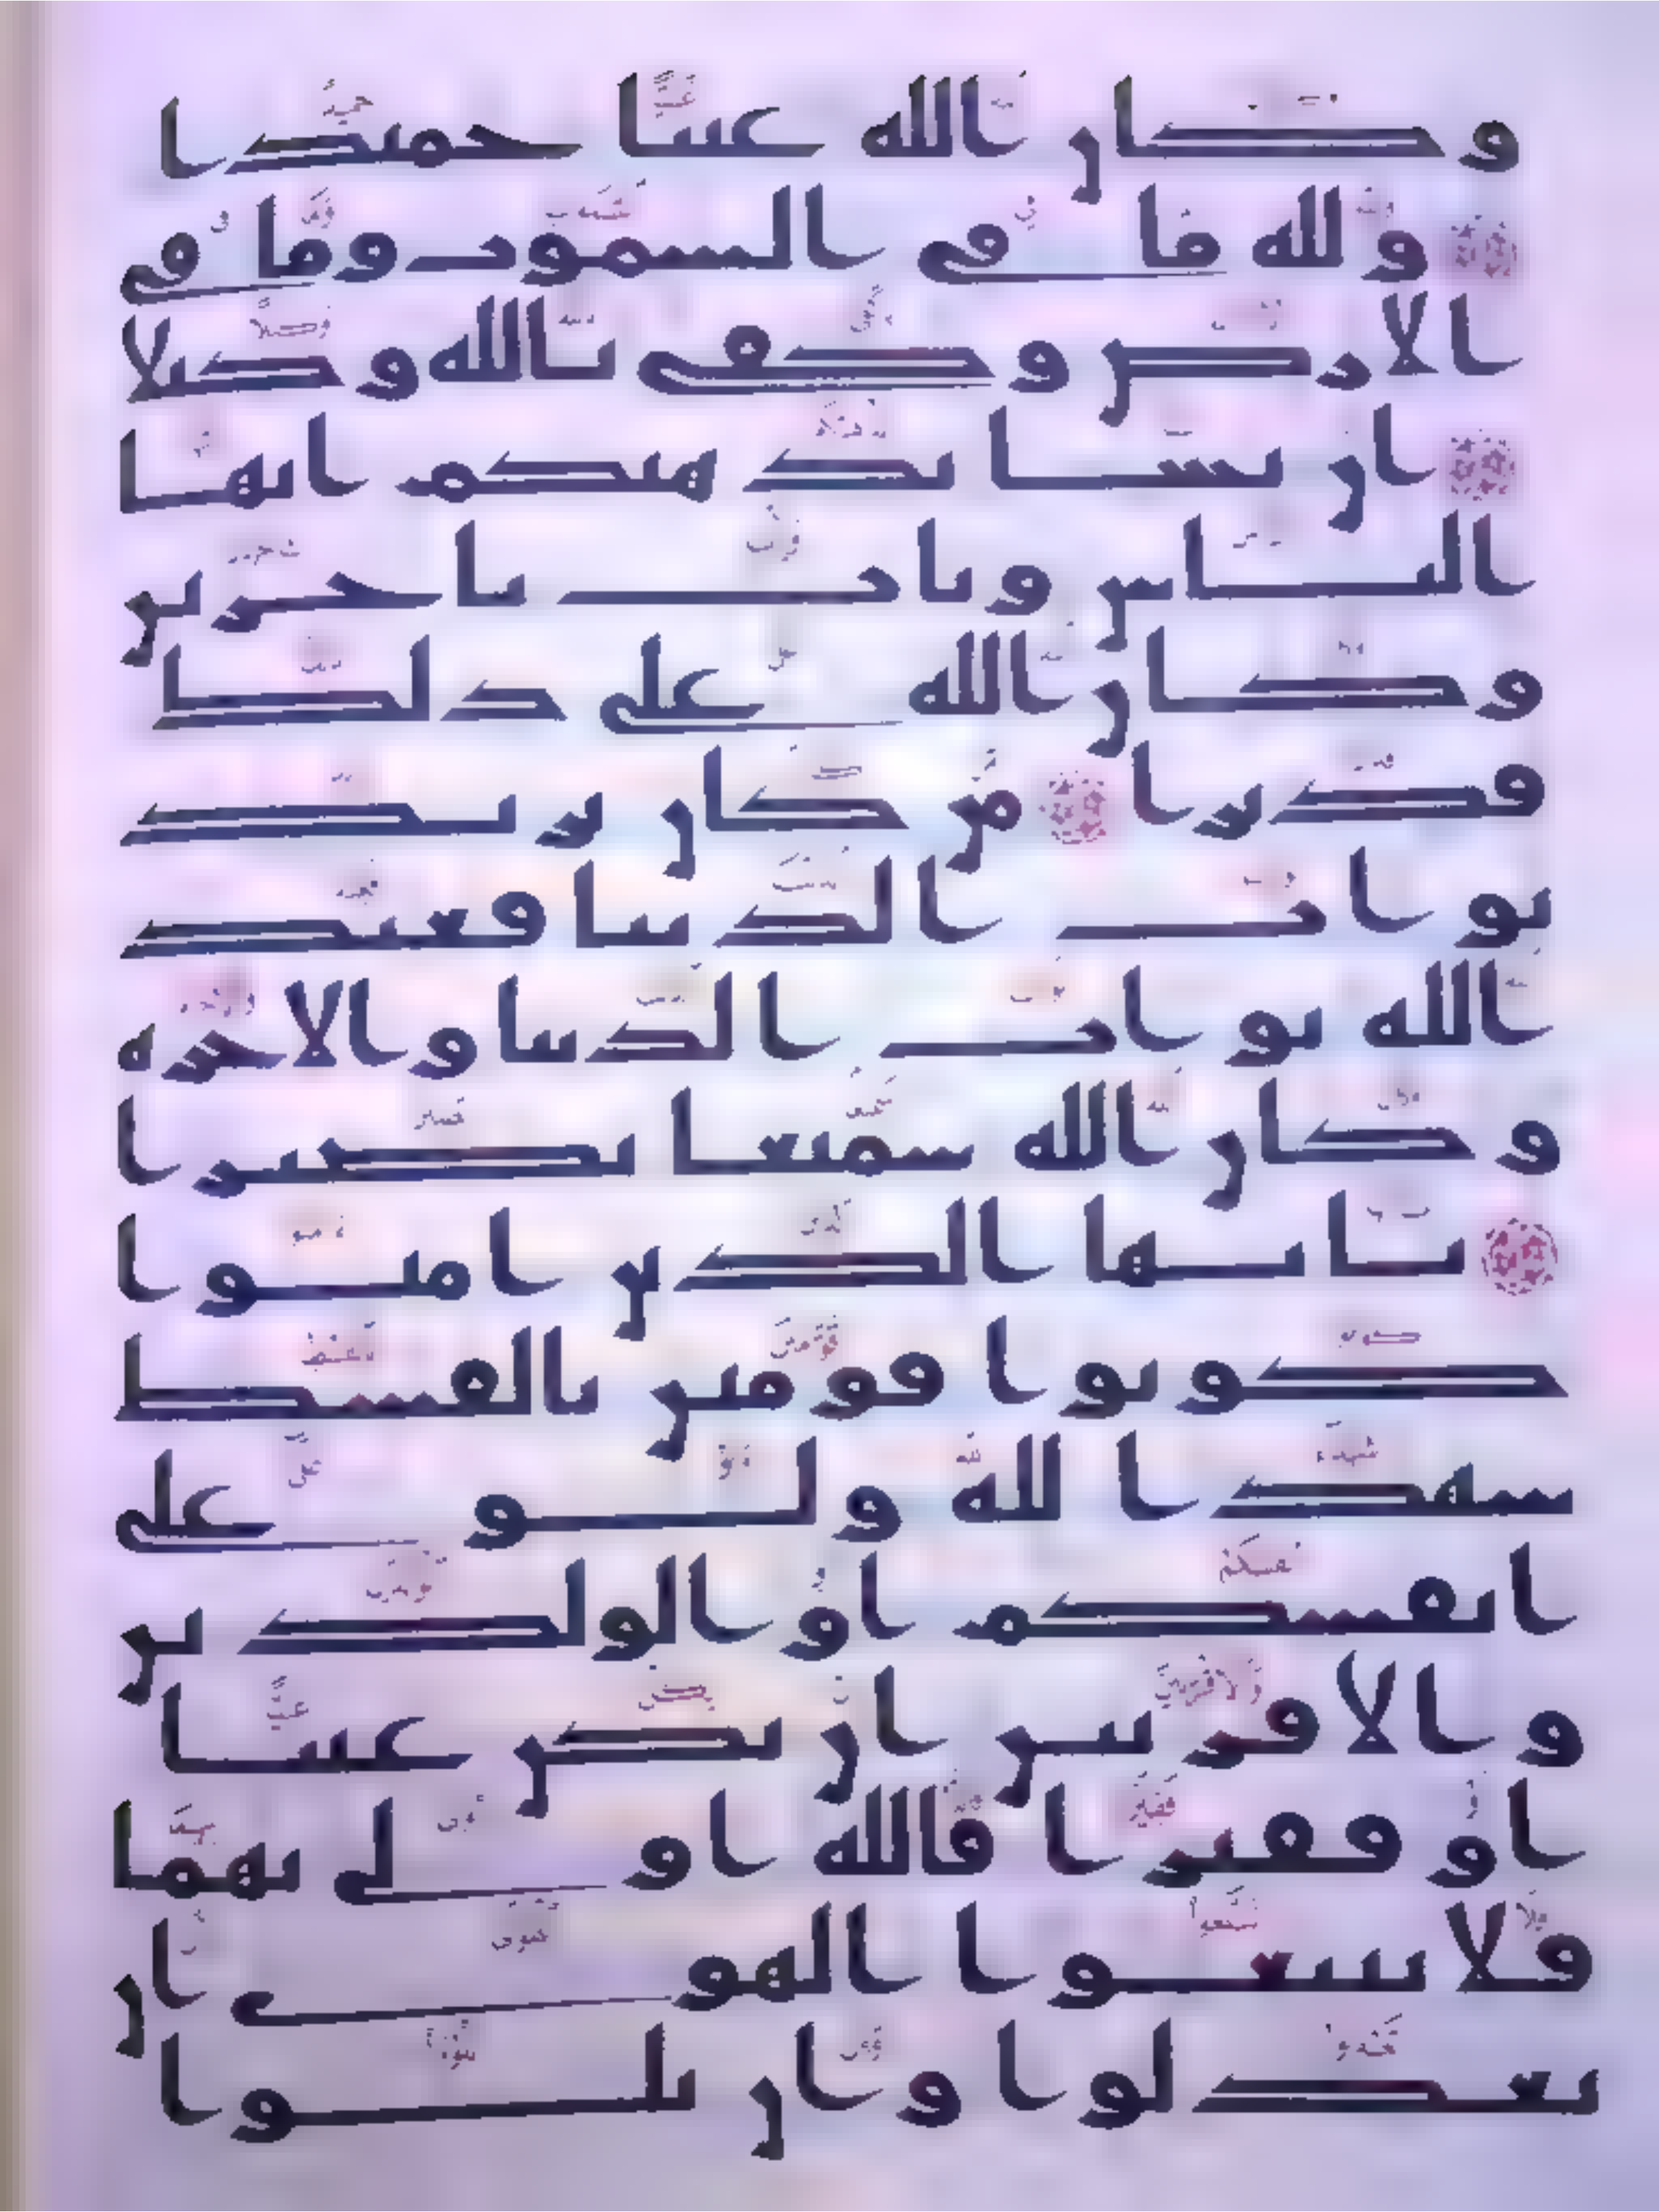 وكان الله غنيا حميدا
ولله ما في السموت وما في
الارض وكفى بالله وكيلا
ان يشا يذهبكم ايها
الناس ويات باخرين
وكان الله على ذلك
قديرا من كان يريد
ثواب الدنيا فعند
الله ثواب الدنيا والاخرة
وكان الله سميعا بصيرا
يايها الذين امنوا
كونوا قومين بالقسط
شهدا لله ولو على
انفسكم او الولدين
والاقربين ان يكن غنيا
او فقيرا فالله اولى بهما
فلا تتبعوا الهوى ان
تعدلوا وان تلوا